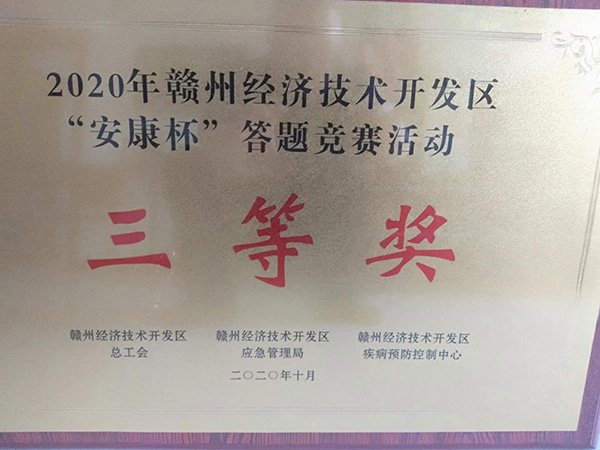 2020年赣州经济技术开发区
“安康杯”答题竞赛活动
三等奖
赣州经济技术开发区 赣州经济技术开发区 赣州经济技术开发区
总工会 应急管理局 疾病预防控制中心
二〇二〇年十月